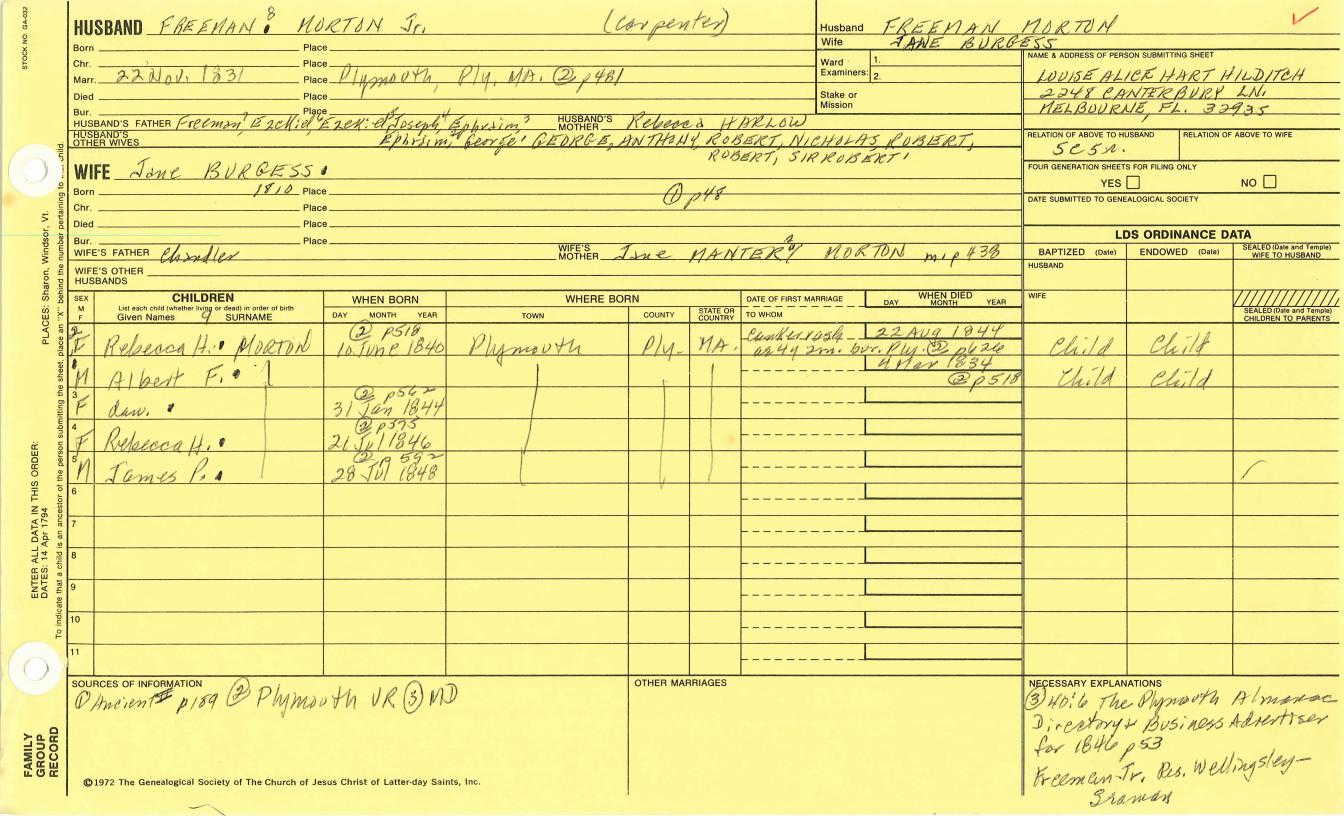 STOCK NO. GA-032
HUSBAND FREEMAN 8 MORTON Jr. (Carpenter)
Born Place
Chr. Place
Marr. 22 Nov. 1831 Place Plymouth, Ply, MA. ② p481
Died Place
Bur. Place
HUSBAND'S FATHER Freeman, Ezekiel, Ezekiel, Joseph, Ephraim, HUSBAND'S MOTHER Rebecca HARLOW
HUSBAND'S OTHER WIVES Ephraim, George, GEORGE, ANTHONY, ROBERT, NICHOLAS, ROBERT,
ROBERT, SIR ROBERT
WIFE Jane BURGESS
Born 1810 Place ① p48
Chr. Place
Died Place
Bur. Place
WIFE'S FATHER Chandler WIFE'S MOTHER Jane MANTER MORTON m 1 p438
WIFE'S OTHER HUSBANDS
Husband FREEMAN MORTON
Wife JANE BURGESS
Ward Examiners: 1.
2.
Stake or Mission
NAME & ADDRESS OF PERSON SUBMITTING SHEET
LOUISE ALICE HART HILDITCH
2248 CANTERBURY LN.
MELBOURNE, FL. 32935
RELATION OF ABOVE TO HUSBAND RELATION OF ABOVE TO WIFE
5C5r.
FOUR GENERATION SHEETS FOR FILING ONLY
YES NO
DATE SUBMITTED TO GENEALOGICAL SOCIETY
LDS ORDINANCE DATA
BAPTIZED (Date) ENDOWED (Date) SEALED (Date and Temple) WIFE TO HUSBAND
HUSBAND
WIFE
SEALED (Date and Temple) CHILDREN TO PARENTS
SEX M F CHILDREN WHEN BORN WHERE BORN DATE OF FIRST MARRIAGE WHEN DIED
List each child (whether living or dead) in order of birth
Given Names 9 SURNAME DAY MONTH YEAR TOWN COUNTY STATE OR COUNTRY TO WHOM DAY MONTH YEAR
2 F Rebecca H. MORTON ② p518 10 June 1840 Plymouth Ply. MA. Canker rash 22 Aug 1844 2m. bur. Ply. ② p626 Child Child
M Albert F. 9 Mar 1834 ② p518 Child Child
3 F dau. ② p562 31 Jan 1844
4 F Rebecca H. ② p575 21 Jul 1846
5 M James P. ② p592 28 Jul 1848
6
7
8
9
10
11
SOURCES OF INFORMATION
① Ancient p189 ② Plymouth VR ③ MD
OTHER MARRIAGES
NECESSARY EXPLANATIONS
③ 40:6 The Plymouth Almanac
Directory & Business Advertiser
for 1846 p53
Freeman Jr. Res. Wellingsley-
©1972 The Genealogical Society of The Church of Jesus Christ of Latter-day Saints, Inc.
FAMILY GROUP RECORD
ENTER ALL DATA IN THIS ORDER:
DATES: 14 Apr 1794
PLACES: Sharon, Windsor, Vt.
To indicate that a child is an ancestor of the person submitting the sheet, place an "X" behind the number pertaining to that child.